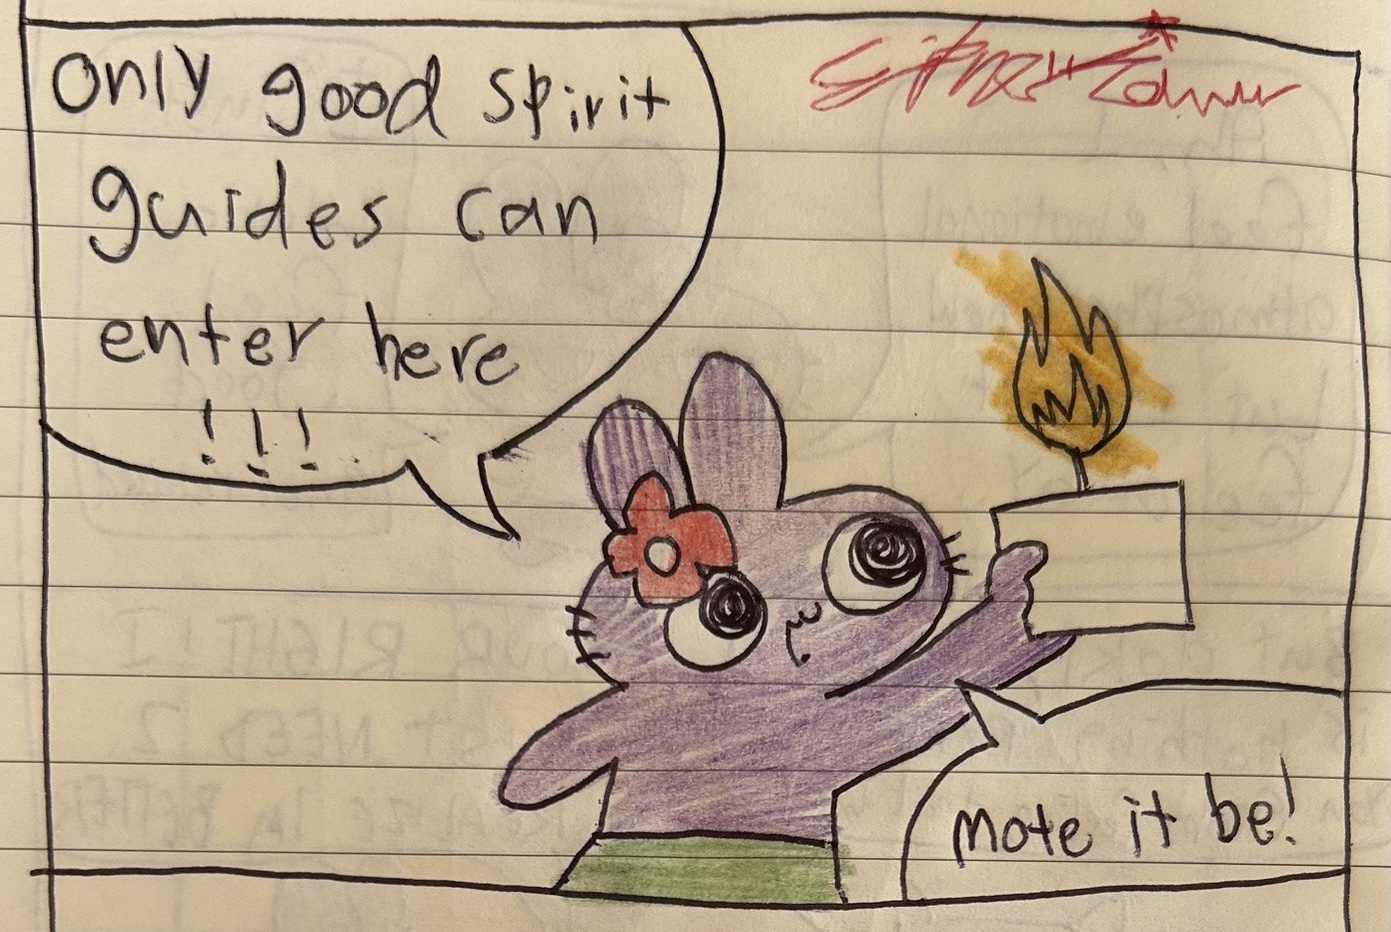 only good spirit
guides can
enter here
!!!
mote it be!